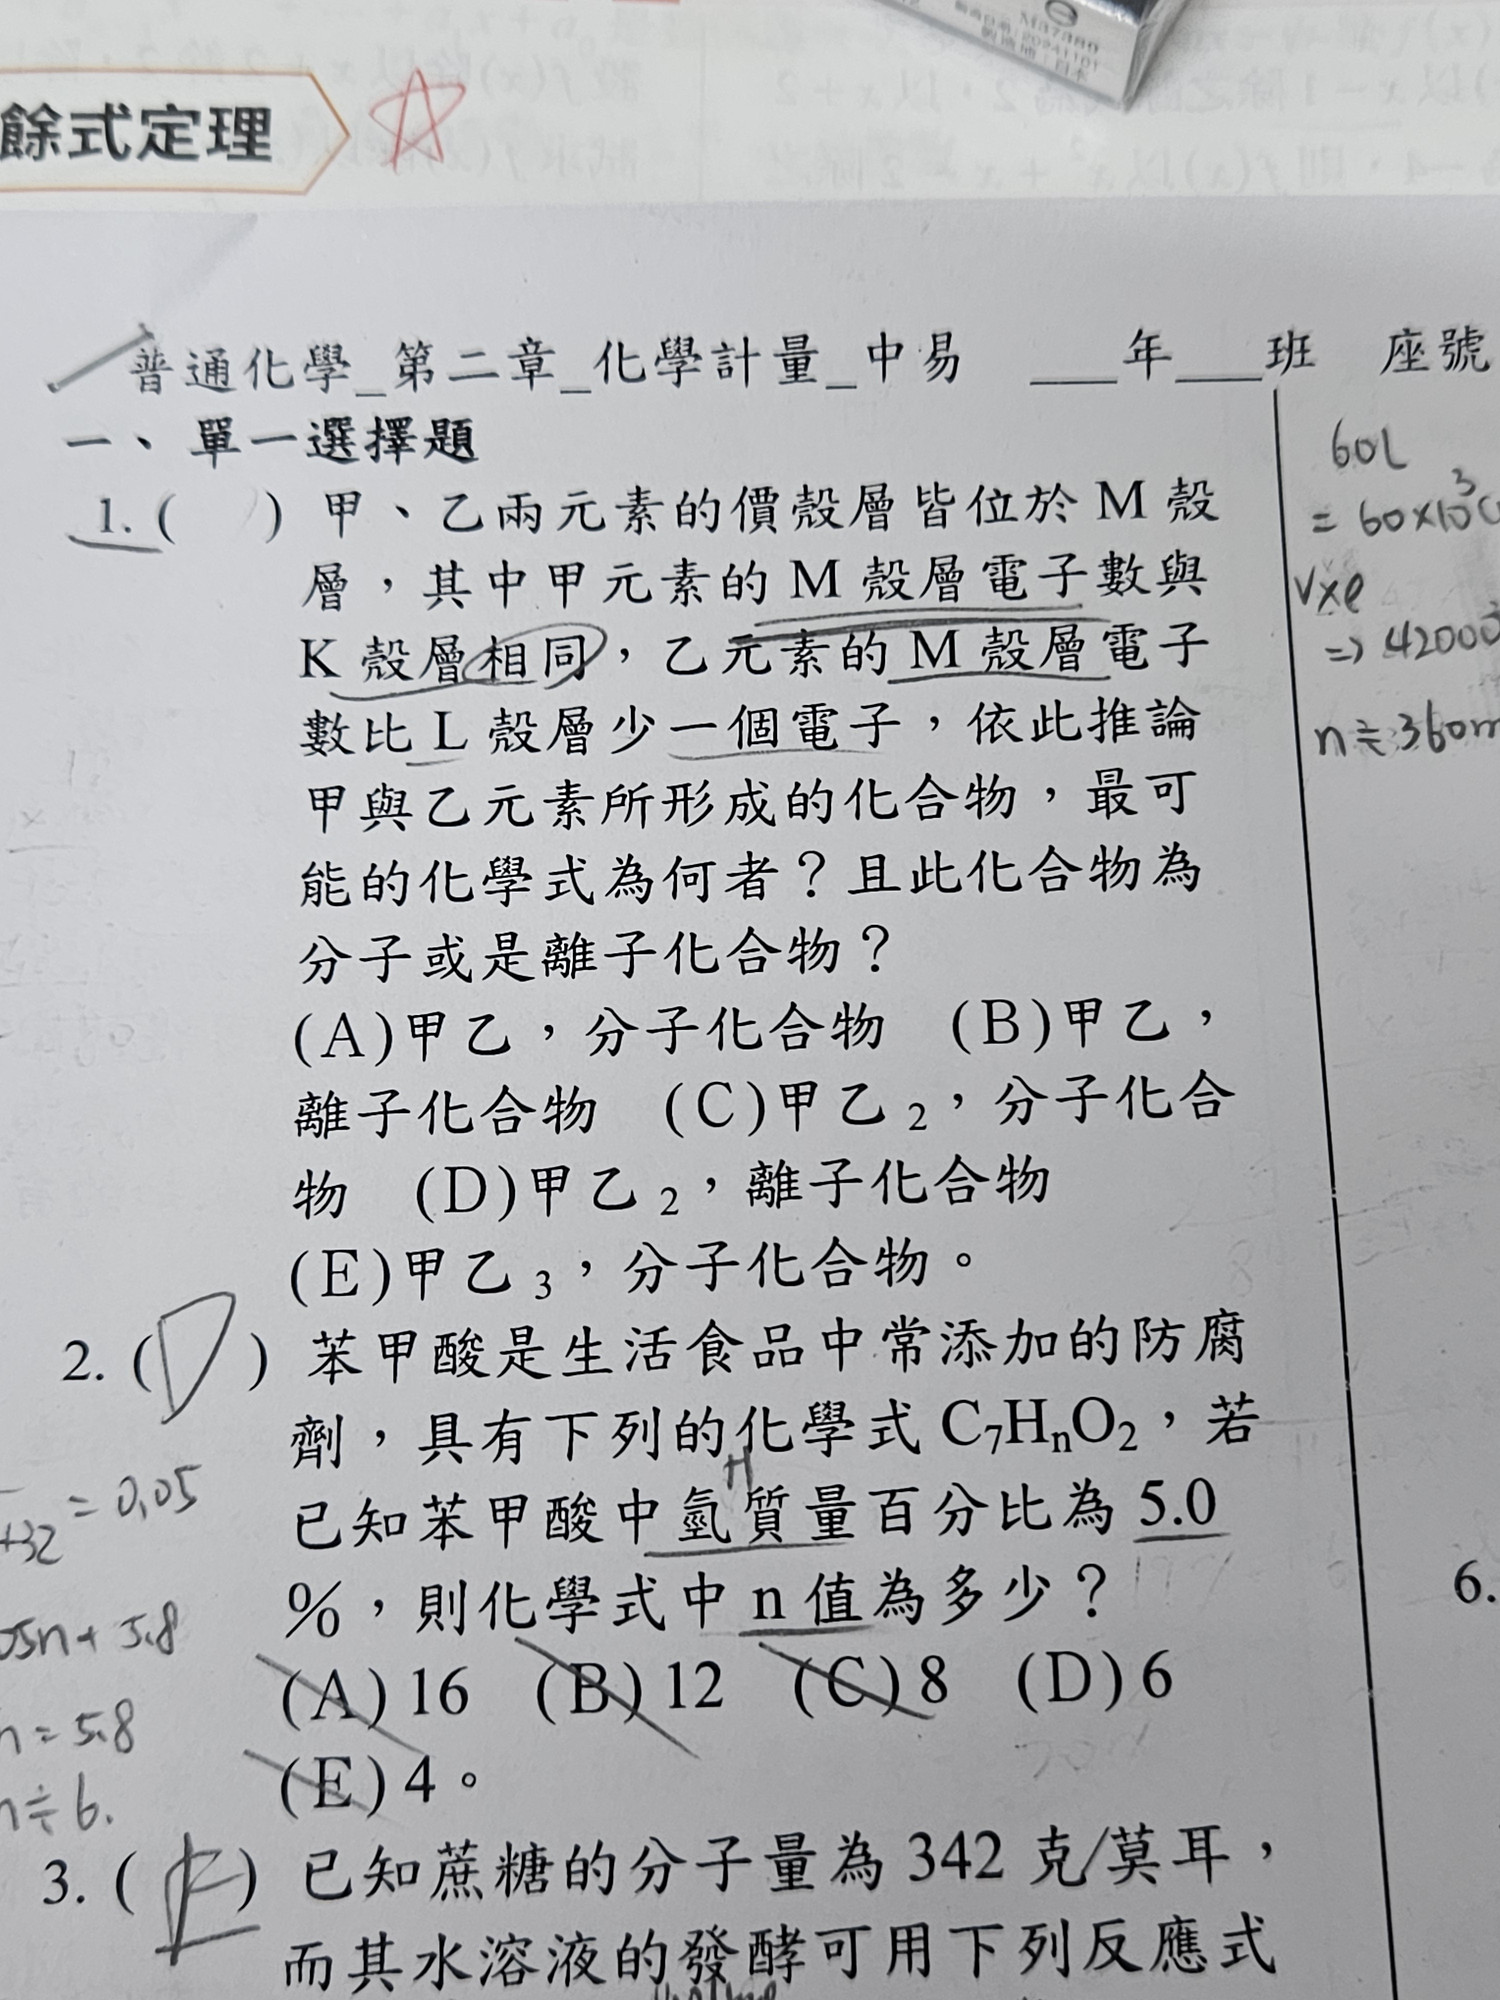 餘式定理
普通化學_第二章_化學計量_中易 ___年___班 座號
一、單一選擇題
1.( ) 甲、乙兩元素的價殼層皆位於 M 殼
層，其中甲元素的 M 殼層電子數與
K 殼層相同，乙元素的 M 殼層電子
數比 L 殼層少一個電子，依此推論
甲與乙元素所形成的化合物，最可
能的化學式為何者？且此化合物為
分子或是離子化合物？
(A)甲乙，分子化合物 (B)甲乙，
離子化合物 (C)甲乙₂，分子化合
物 (D)甲乙₂，離子化合物
(E)甲乙₃，分子化合物。
2.(D) 苯甲酸是生活食品中常添加的防腐
劑，具有下列的化學式 C₇HₙO₂，若
H
已知苯甲酸中氫質量百分比為 5.0
%，則化學式中 n 值為多少？
(A) 16 (B) 12 (C) 8 (D) 6
(E) 4。
3.(E) 已知蔗糖的分子量為 342 克/莫耳，
而其水溶液的發酵可用下列反應式
+32 = 0.05
05n+5.8
n=5.8
n≒6.
60L
= 60×10³
V×e
=> 42000
n≒360m
6.